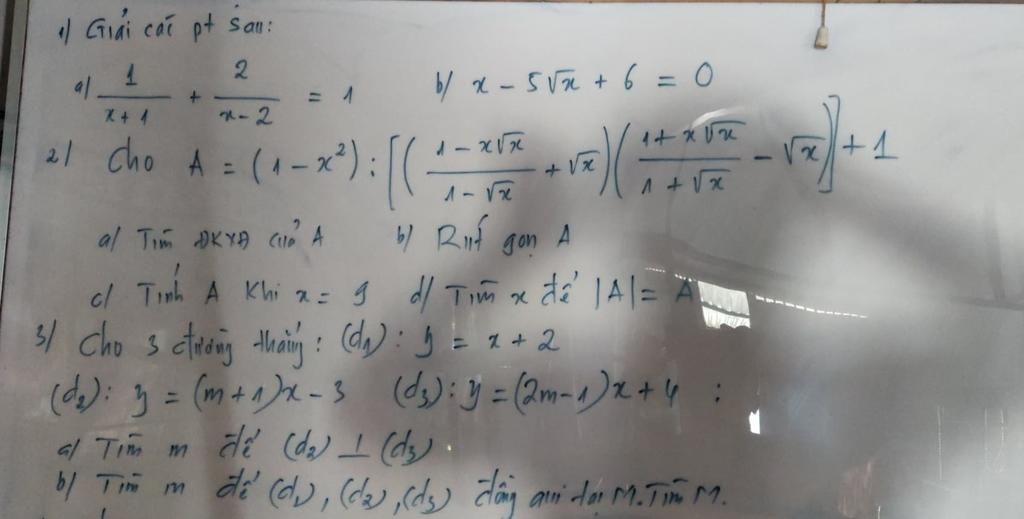 1) Giải các pt sau:
a) 1/(x+1) + 2/(x-2) = 1 b) x - 5√x + 6 = 0
2) Cho A = (1 - x²) : [((1 - x√x)/(1 - √x) + √x)((1 + x√x)/(1 + √x) - √x)] + 1
a) Tìm ĐKXĐ của A b) Rút gọn A
c) Tính A khi x = 9 d) Tìm x để |A| = A
3) Cho 3 đường thẳng: (d₁): y = x + 2
(d₂): y = (m+1)x - 3 (d₃): y = (2m-1)x + 4 :
a) Tìm m để (d₂) ⊥ (d₃)
b) Tìm m để (d₁), (d₂), (d₃) đồng qui tại M. Tìm M.